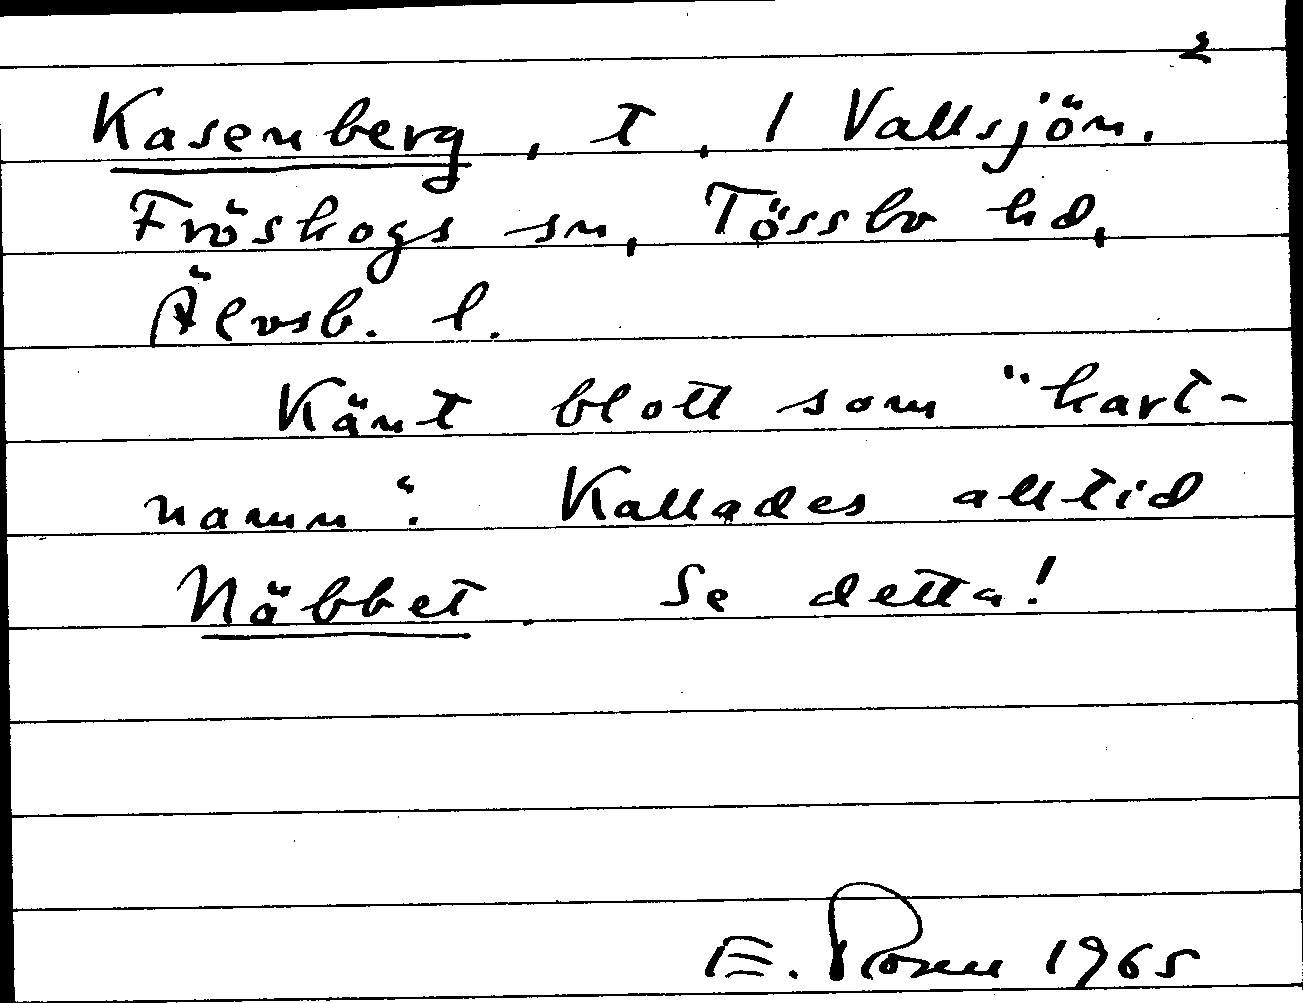 2
Kasenberg, t, 1 Vallsjön.
Fröskogs sn, Tössbo hd,
Älvsb. l.
Känt blott som "kart-
namn". Kallades alltid
Näbbet. Se detta!
E. Rosén 1965